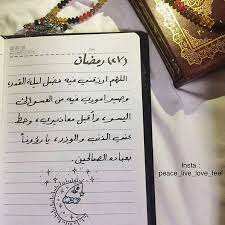 (٢٧) رمضان
اللهم ارزقني فيه فضل ليلة القدر
وصير اموري فيه من العسر إلى
اليسر، وأقبل معاذيري، وحط
عني الذنب والوزر، يا رؤوفاً
بعباده الصالحين.
Insta :
peace_live_love_feel